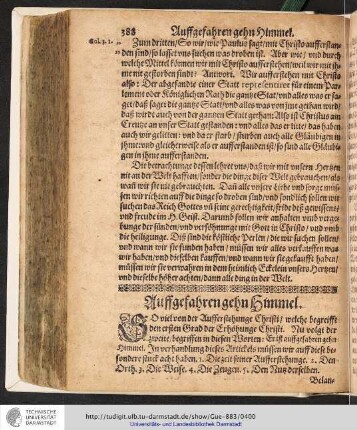 388 Auffgefahren gehn Himmel.
Col. 3. 1.
Zum dritten/ So wir/ wie Paulus sagt/ mit Christo aufferstan-
den sind/ so lasset uns suchen was droben ist. Aber wie/ und durch
welche Mittel können wir mit Christo aufferstehen/ weil wir mit ih-
me nit gestorben sindt? Antwort. Wir aufferstehen mit Christo
also: Der abgesandte einer Statt representieret für einem Parla-
ment oder Königlichen Raht die gantz Statt/ und alles was er sa-
get/ daß saget die gantze Statt/ und alles was von jme gethan wird/
daß wirdt auch von der gantzen Statt gethan: Also ist Christus am
Creutze an unser Statt gestanden/ und alles das er litte/ das haben
auch wir gelitten/ und da er starb/ sturben auch alle Gläubigen in
ihme/ und gleicherweise als er aufferstanden ist/ so sind alle Gläubi-
gen in ihme aufferstanden.
Die betrachtunge dessen lehret uns/ daß wir mit unsern Hertzen
nit an der Welt hafften/ sonder die dinge diser Welt gebrauchen/ als
wann wir sie nit gebrauchten. Dann alle unsere Liebe und sorge müs-
sen wir richten auff die dinge so droben sind/ und sonderlich sollen wir
suchen das Reich Gottes und seine gerechtigkeit/ fride des gewissens/
und freude im H. Geist. Darumb sollen wir anhalten umb verge-
bunge der sünden/ und versöhnunge mit Gott in Christo/ und umb
die heiligunge. Diß sind die köstliche Perlen/ die wir suchen sollen/
und wann wir sie funden haben/ müssen wir alles verkauffen was
wir haben/ und dieselben kauffen/ und wann wir sie gekaufft haben/
müssen wir sie verwahren in dem heimlich Eckelein unsers Hertzen/
und dieselbe höher achten/ dann alle ding in der Welt.
Auffgefahren gehn Himmel.
SO viel von der Aufferstehunge Christi/ welche begreifft
den ersten Grad der Erhöhunge Christi. Nu volget der
zweite/ begriffen in diesen Worten: Er ist auffgefahren gehn
Himmel. In verhandlung dieses Articksls müssen wir auff dieß be-
sondere fünff acht haben. 1. Die zeit seiner Aufferstehunge. 2. Den
Orth. 3. Die Weise. 4. Die Zeugen. 5. Den Nutz derselben.
Belan-
TECHNISCHE
UNIVERSITÄT
DARMSTADT
http://tudigit.ulb.tu-darmstadt.de/show/Gue-883/0400
Universitäts- und Landesbibliothek Darmstadt